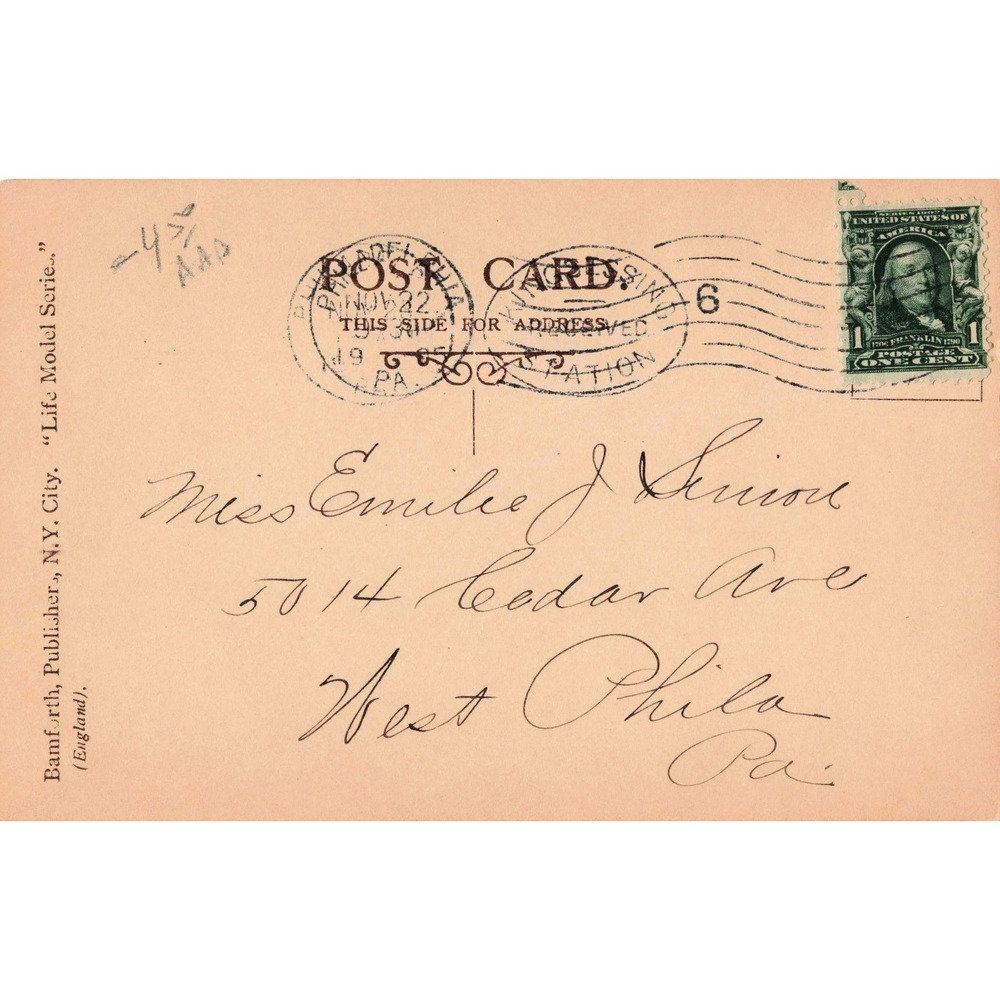 -4 5/
AAD
POST CARD.
THIS SIDE FOR ADDRESS.
PHILADELPHIA
NOV 22
19 05
PA
KINGSESSING
RECEIVED
STATION
6
SERIES 1902
UNITED STATES OF
AMERICA
1 1706 FRANKLIN 1790 1
POSTAGE
ONE CENT
Miss Emilie J Simon
5014 Cedar Ave
West Phila
Pa.
Bamforth, Publishers, N.Y. City. "Life Model Series."
(England).